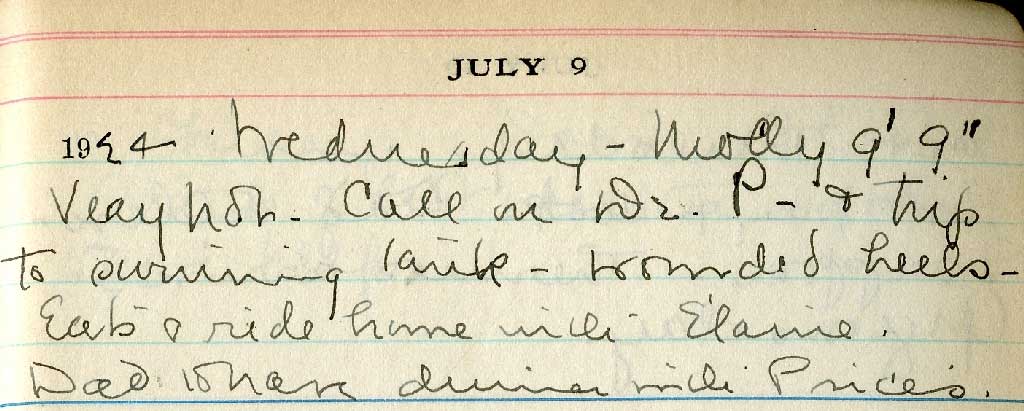 JULY 9
1924 Wednesday - Molly 9' 9"
Very hot - Call on Dr. P - & trip
to swimming tank - wounded heels -
Eats & ride home with Elaine.
Dad & have dinner with Prices.